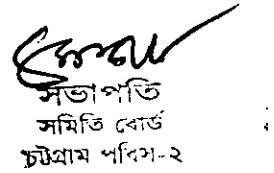 সভাপতি
সমিতি বোর্ড
চট্টগ্রাম পবিস-২